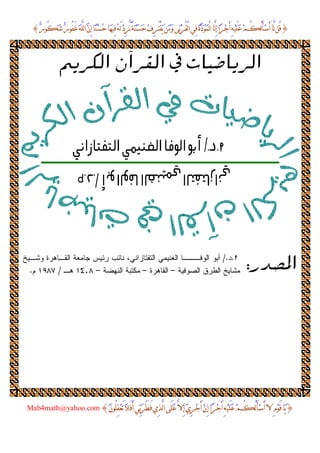 ﴿ قُل لَّا أَسْأَلُكُمْ عَلَيْهِ أَجْرًا إِلَّا الْمَوَدَّةَ فِي الْقُرْبَىٰ وَمَن يَقْتَرِفْ حَسَنَةً نَّزِدْ لَهُ فِيهَا حُسْنًا إِنَّ اللَّهَ غَفُورٌ شَكُورٌ ﴾
الرياضيات في القرآن الكريم
الرياضيات في القرآن الكريم
أ.د./ أبو الوفا الغنيمي التفتازاني
أ.د./ أبو الوفا الغنيمي التفتازاني
الرياضيات في القرآن الكريم
المصدر:
أ.د./ أبو الوفـــــــا الغنيمي التفتازاني، نائب رئيس جامعة القـاهرة وشـيخ
مشايخ الطرق الصوفية – القاهرة – مكتبة النهضة – ١٤٠٨ هـ / ١٩٨٧ م.
﴿ يَا قَوْمِ لَا أَسْأَلُكُمْ عَلَيْهِ أَجْرًا إِنْ أَجْرِيَ إِلَّا عَلَى الَّذِي فَطَرَنِي أَفَلَا تَعْقِلُونَ ﴾ Mab4math@yahoo.com